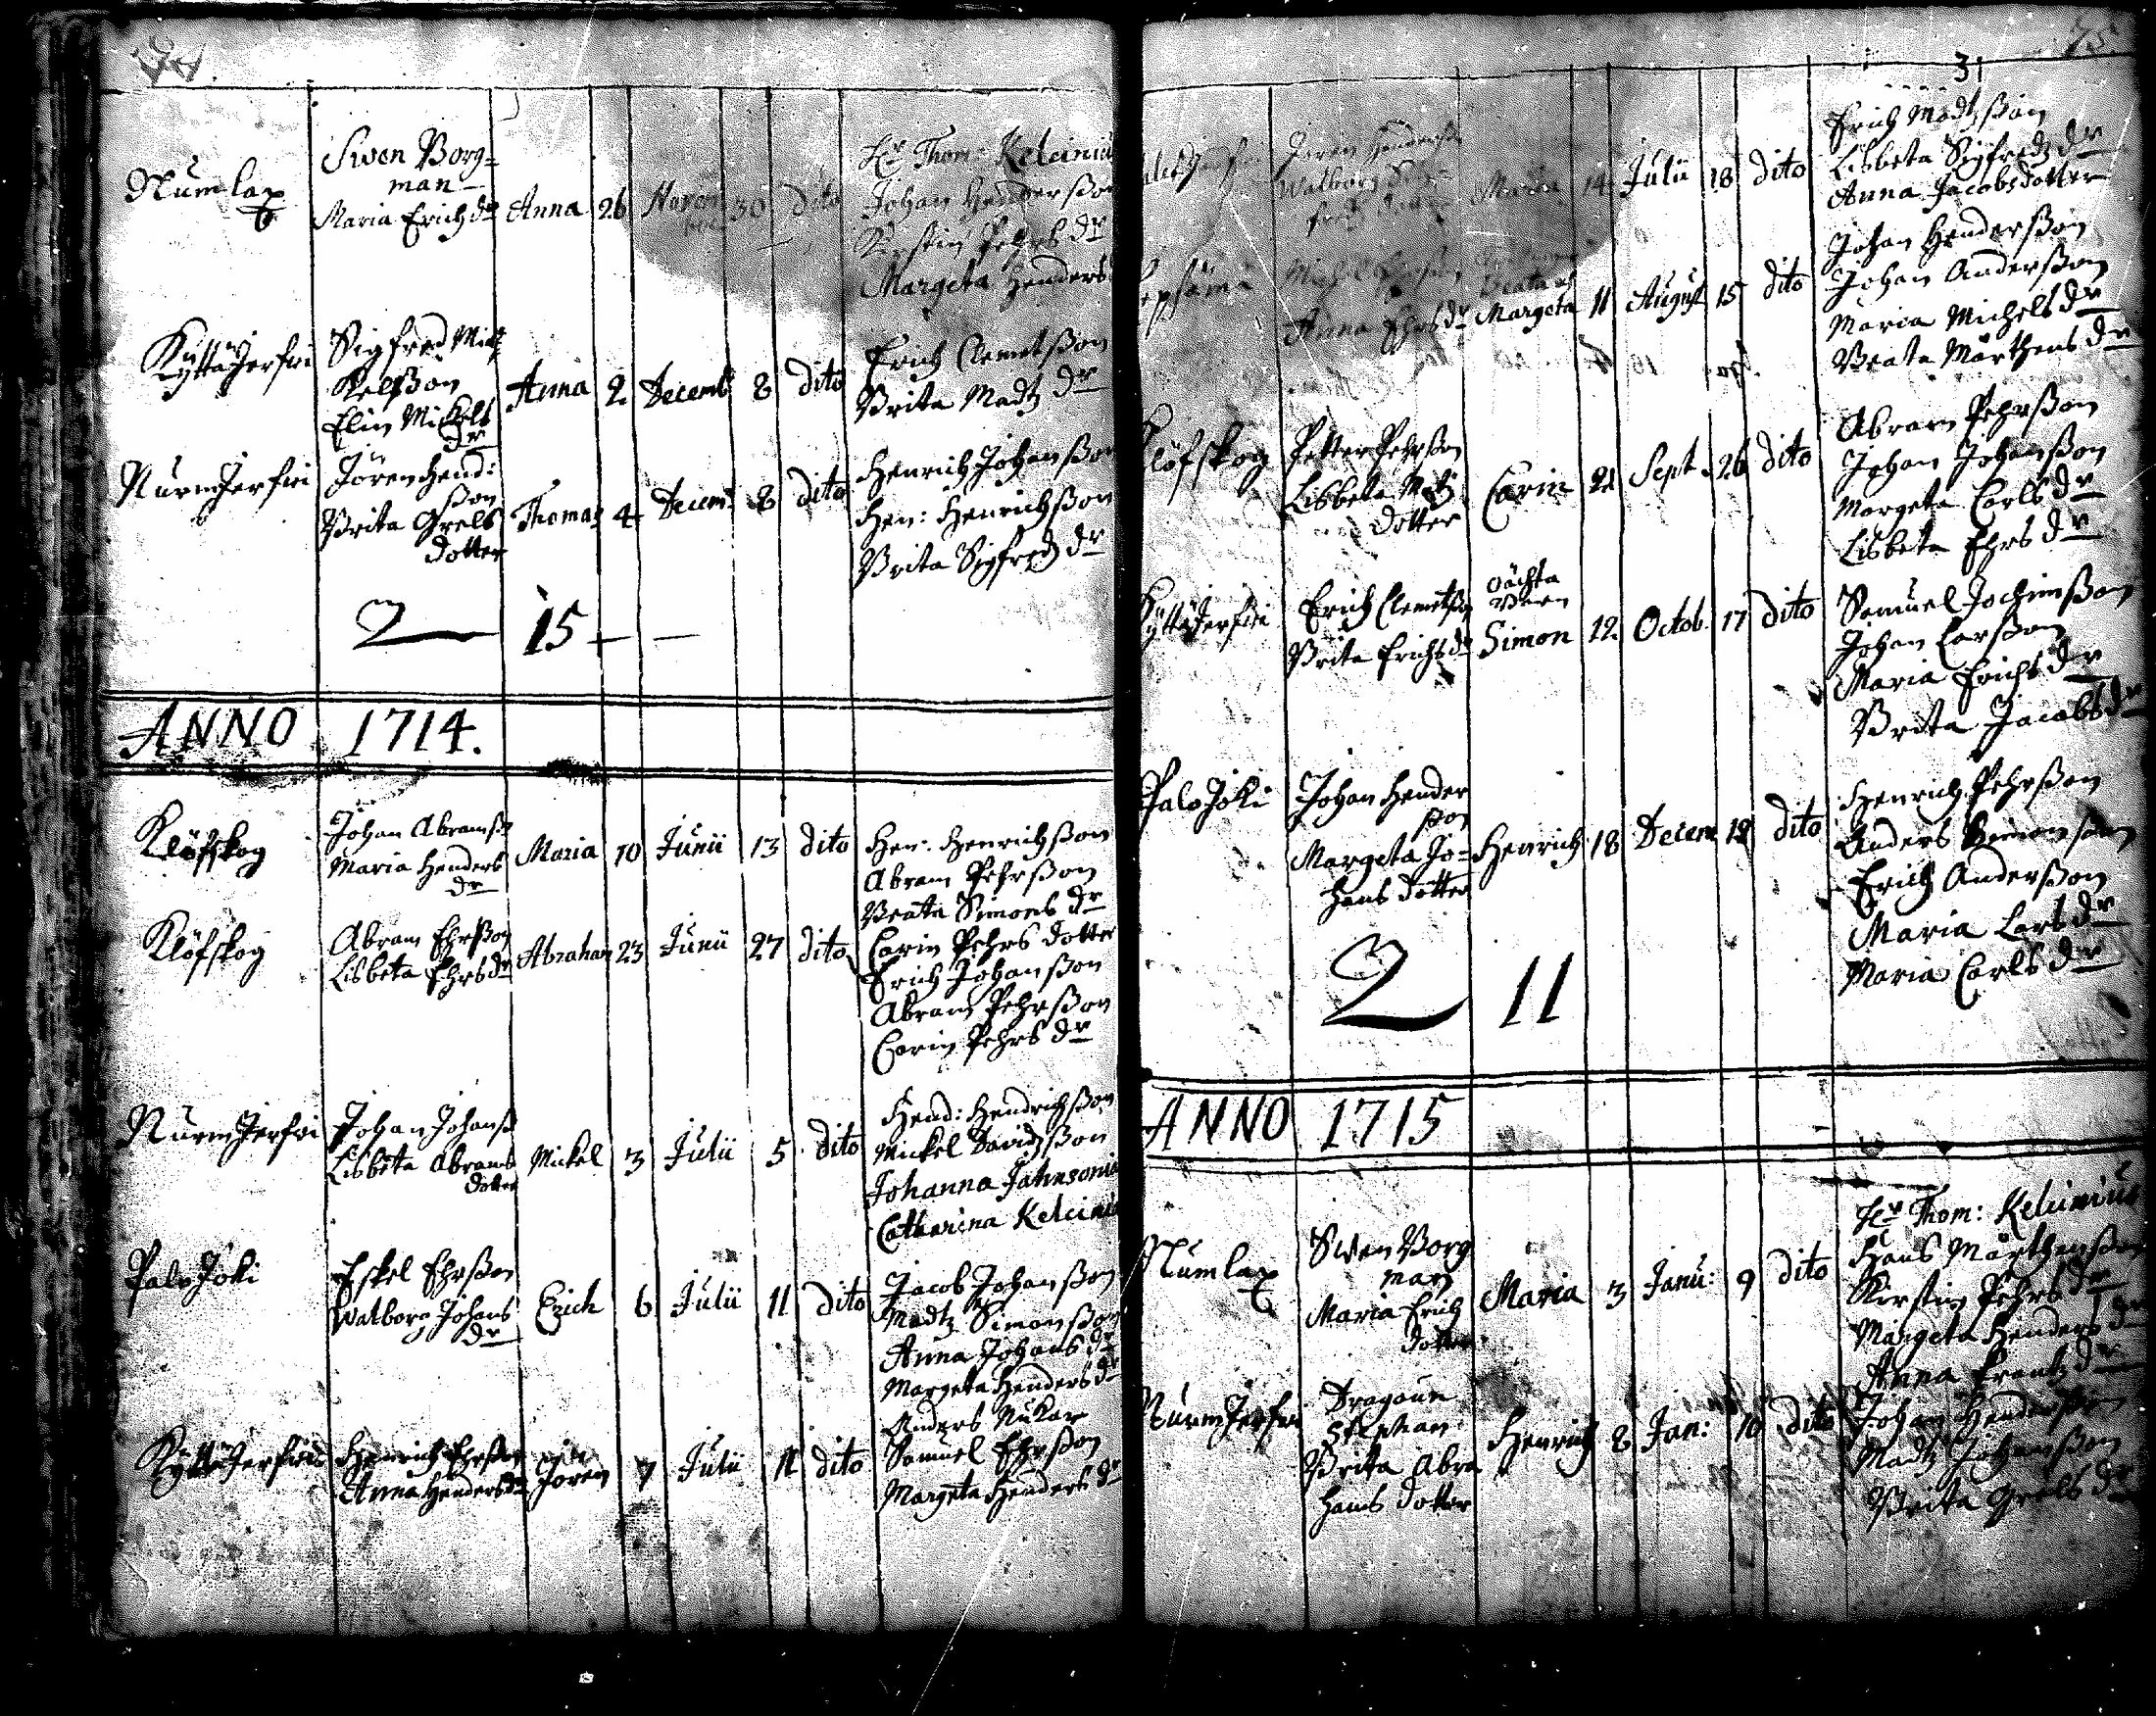 Numlax
Swen Borg=
man
Maria Erich dr
Anna 26 Novem 30 dito
Hr Thom: Keleiniu
Johan Henderßon
Kirstin Pehrs dr
Margeta Henders
Kyttäjerfwi
Sigfred Mic
kelßon
Elin Mickels
dr
Anna 2 Decemb 8 dito
Erich Clemetßon
Brita Madtz dr
Nurmjerfwi
Jören Hend:
ßon
Brita Grels
dotter
Thomas 4 Decem: 8 dito
Henrich Johanßon
Hen: Henrichßon
Brita Sigfredz dr
2 15
ANNO 1714.
Klöfskog
Johan Abramß
Maria Henders
dr
Maria 10 Junii 13 dito
Hen: Henrichßon
Abram Pehrßon
Beata Simons dr
Carin Pehrs dotter
Klöfskog
Abram Ehrßon
Lisbeta Ehrs dr
Abraham 23 Junii 27 dito
Erich Johanßon
Abram Pehrßon
Carin Pehrs dr
Nurmjerfwi
Johan Johanß
Lisbeta Abrams
dotter
Mickel 3 Julii 5 dito
Hend: Hendrichßon
Mickel Davidzßon
Johanna Jahnsoni
Catharina Keleini
Palojoki
Eskel Ehrßon
Walborg Johans
dr
Erich 6 Julii 11 dito
Jacob Johanßon
Madtz Simonßon
Anna Johans dr
Margeta Henders dr
Kyttäjerfwi
Henrich Ehrßon
Anna Henders dr
Jören 7 Julii 11 dito
Anders Nukar
Samuel Ehrßon
Margeta Henders dr
75
31
Jören Henderß
Walborg Sig=
freds dotter
Maria 14 Julii 18 dito
Erich Madtzßon
Lisbeta Sigfredz dr
Anna Jacobsdotter
Johan Henderßon
Michel
Anna Ehrs dr
Beata och
Margeta 11 August 15 dito
Johan Anderßon
Maria Michels dr
Beata Mårthens dr
Klöfskog
Petter Pehrßon
Lisbeta Matz
dotter
Carin 21 Sept. 26 dito
Abram Pehrßon
Johan Johanßon
Margeta Carls dr
Lisbeta Ehrs dr
Kyttäjerfwi
Erich Clemetßon
Brita Erichs dr
oächta
Barn
Simon 12 Octob. 17 dito
Samuel Jochimßon
Johan Larßon
Maria Erichs dr
Brita Jacobs dr
Palojoki
Johan Hender
ßon
Margeta Jo=
hans dotter
Henrich 18 Decem 19 dito
Henrich Pehrßon
Anders Simonsson
Erich Anderßon
Maria Lars dr
Maria Carls dr
2 11
ANNO 1715
Numlax
Swen Borg
man
Maria Erich
dotter
Maria 3 Janu: 9 dito
Hr Thom: Keleinius
Hans Mårthenßon
Kirstin Pehrs dr
Margeta Henders dr
Anna Krantz dr
Nurmjerfwi
Dragoun
Stephan
Brita Abra
hams dotter
Henrich 8 Jan: 10 dito
Johan Henderßon
Madtz Johanßon
Brita Grels dr